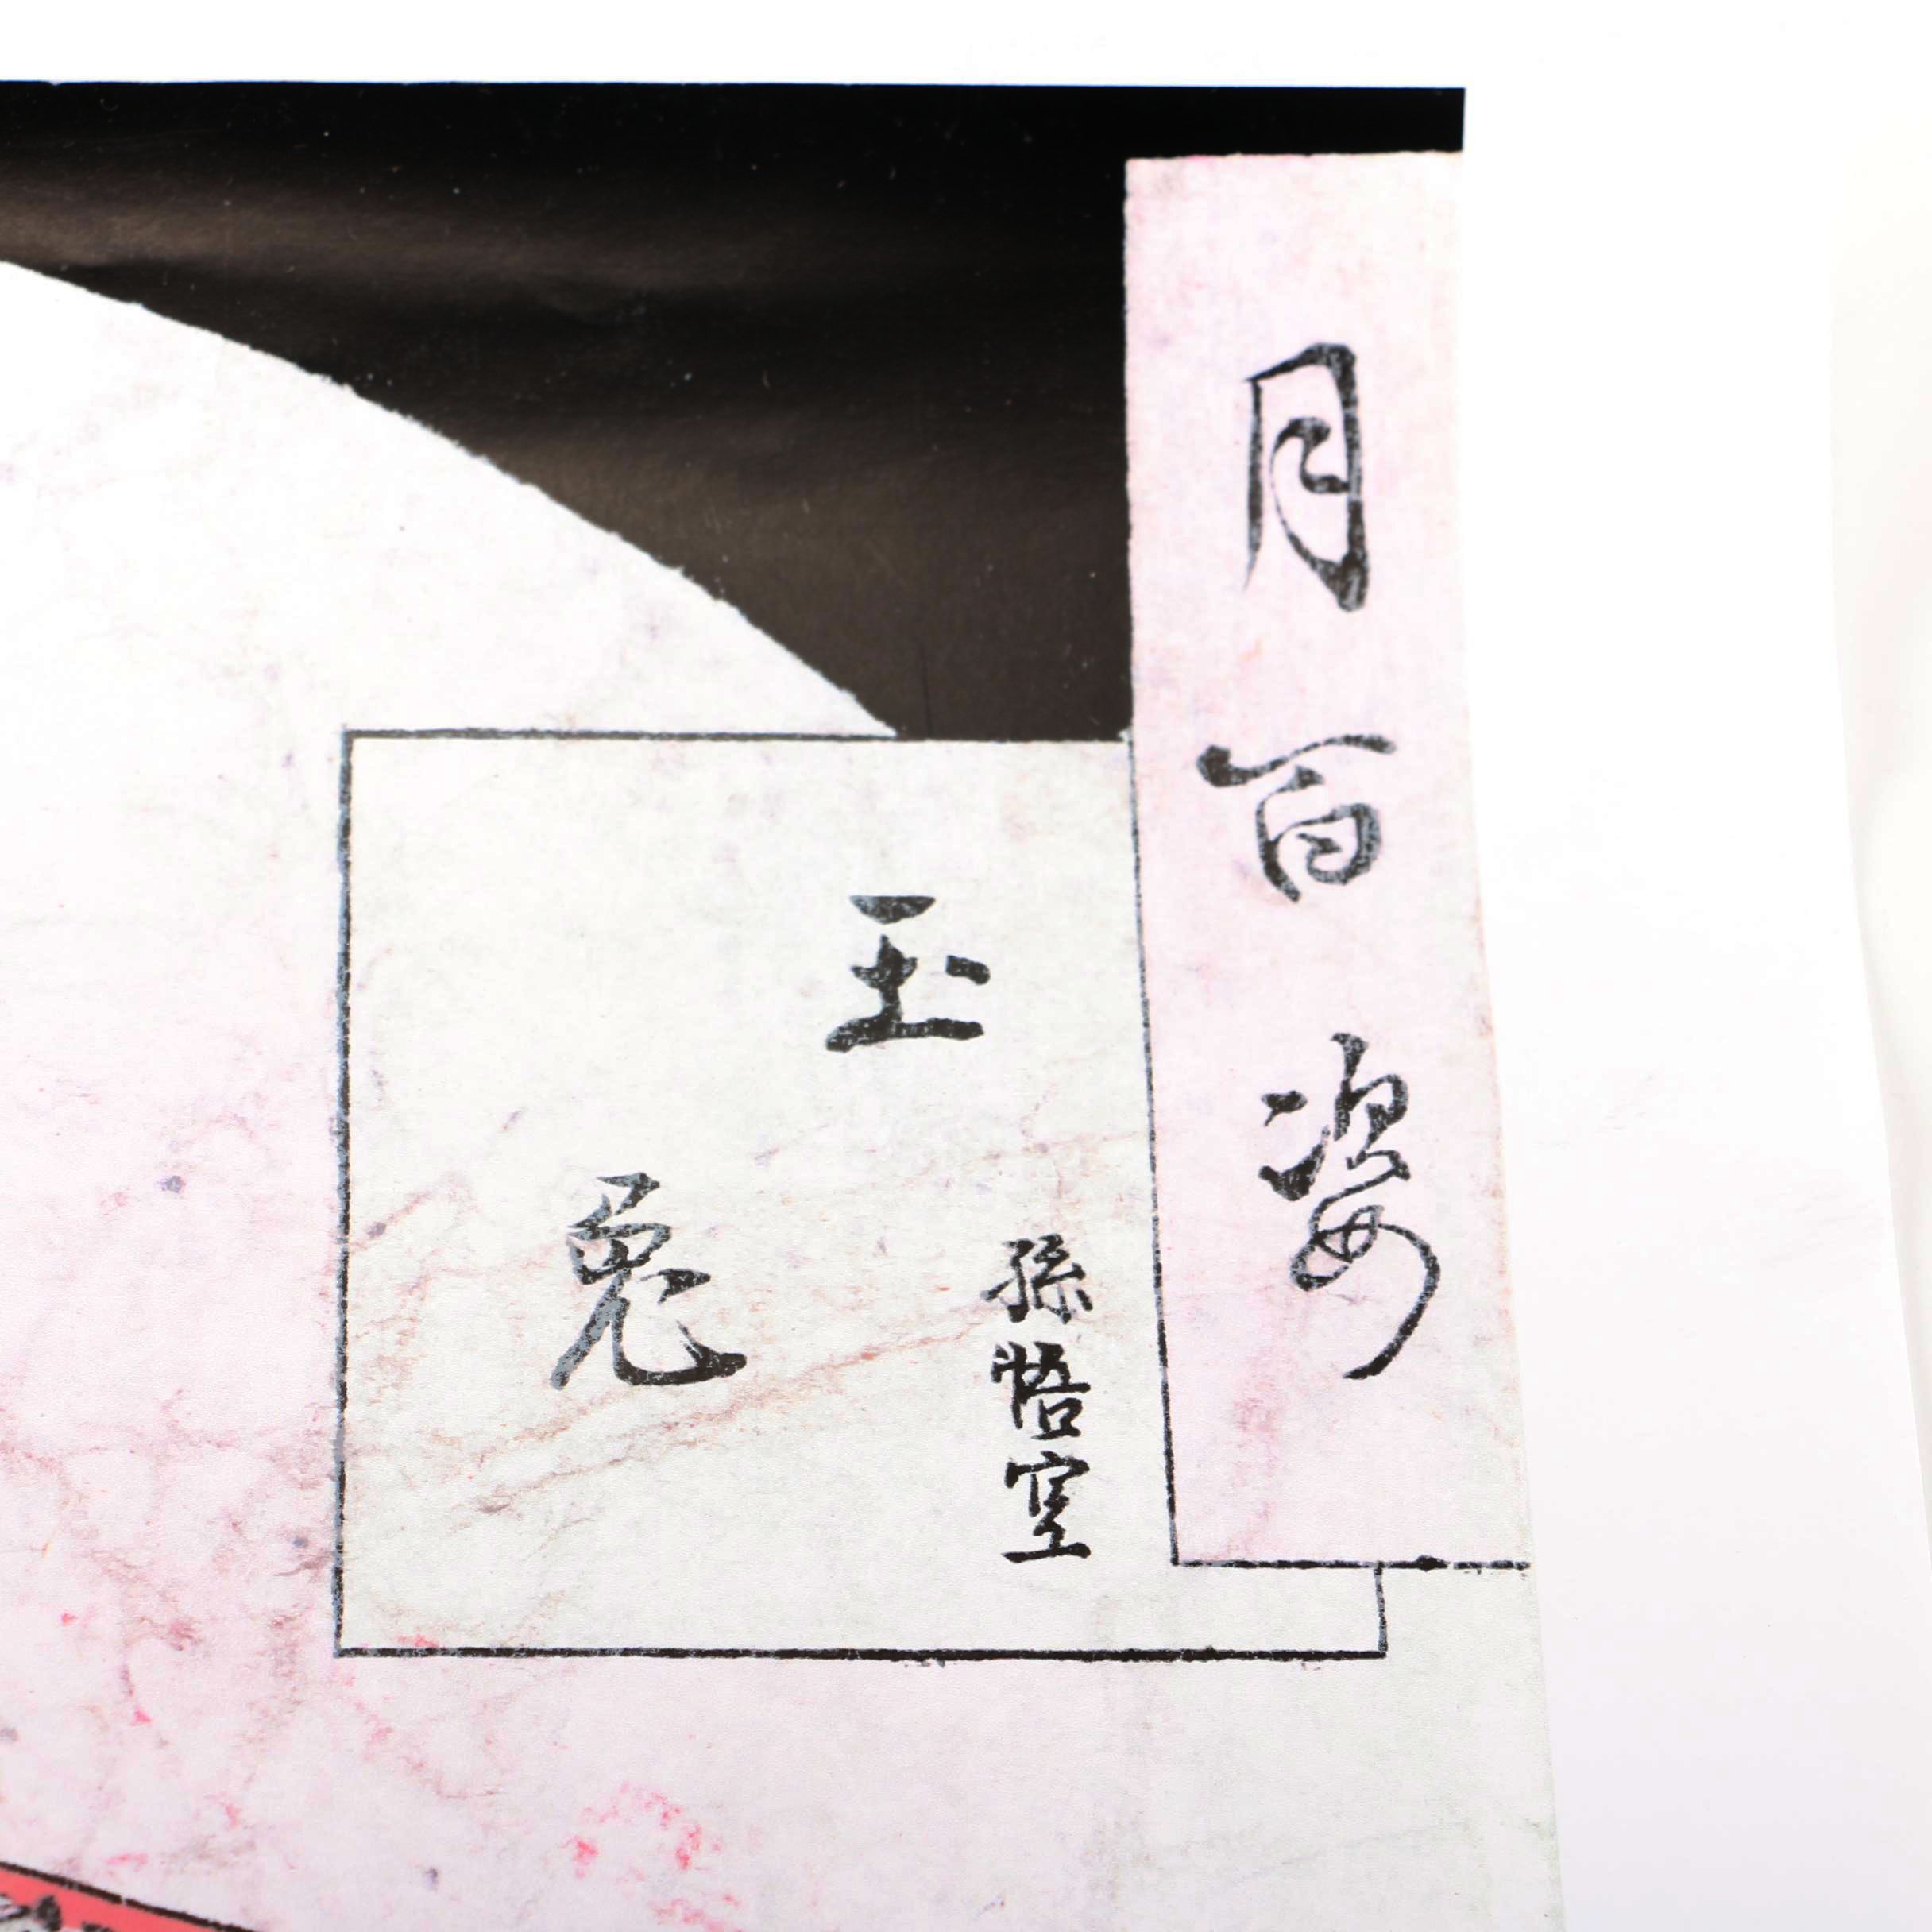 月百姿
玉兎
孫悟空